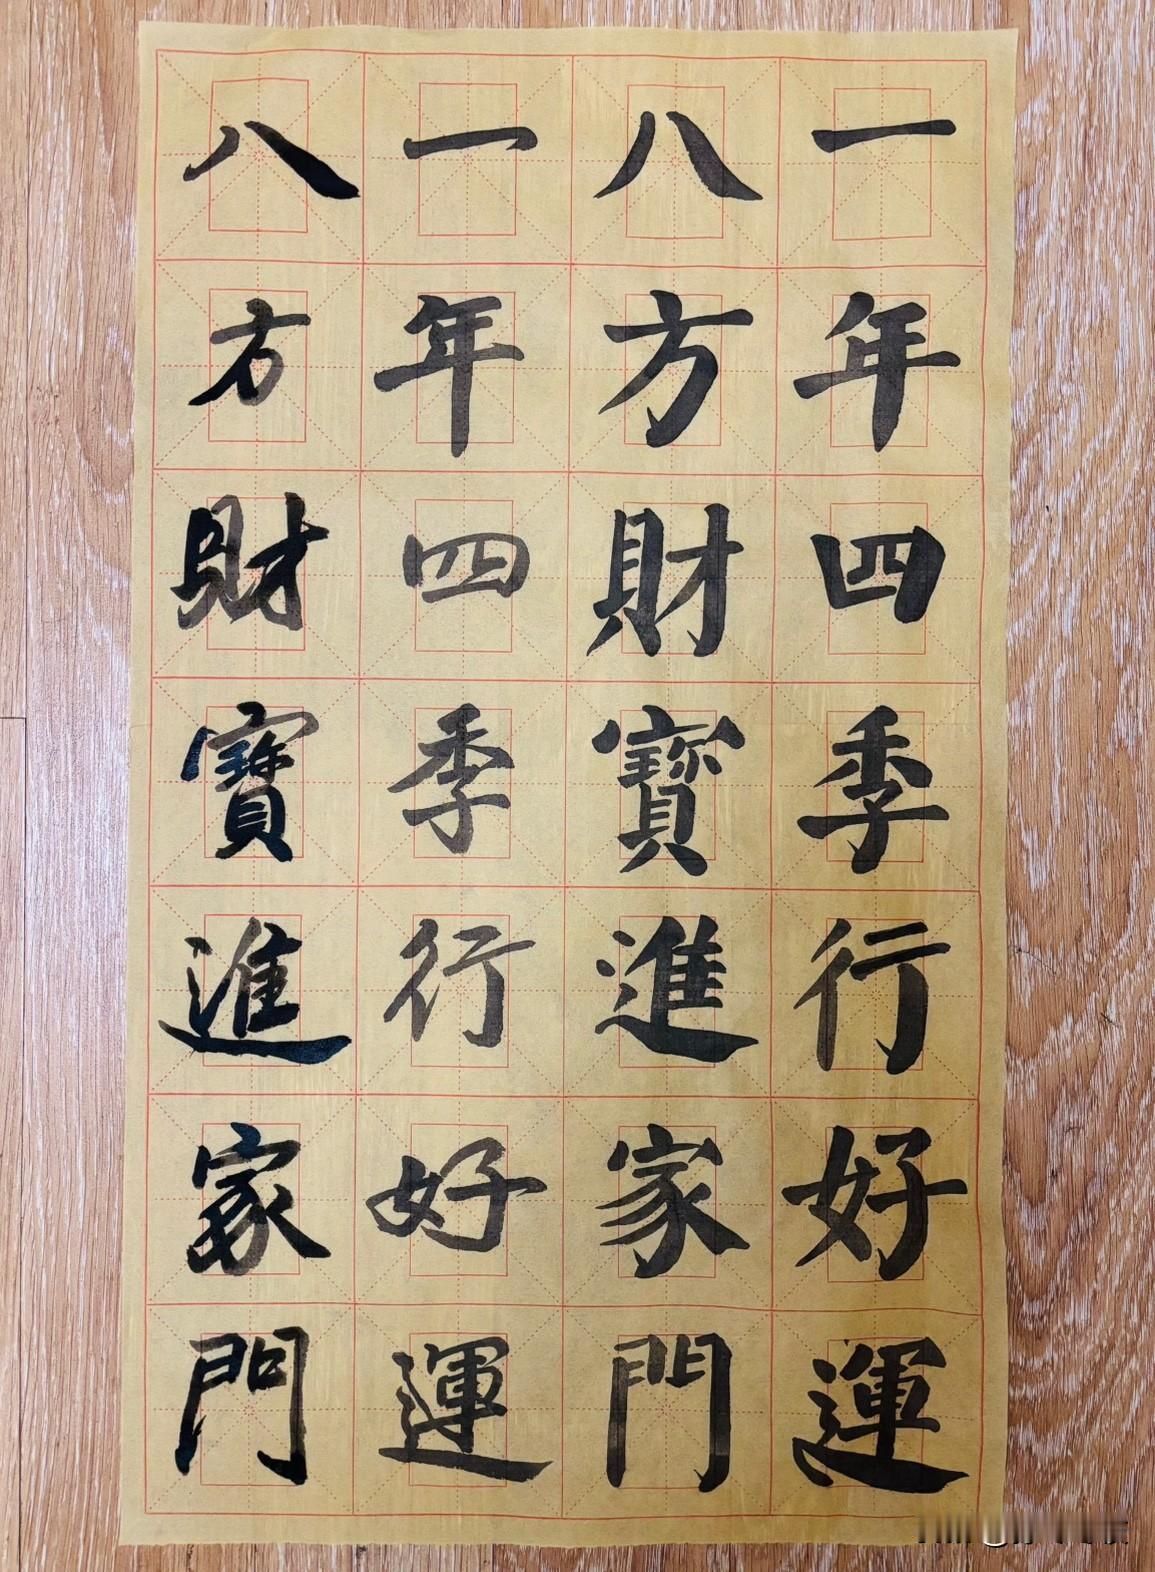 一年四季行好運
八方財寳進家門
一年四季行好運
八方財寳進家門